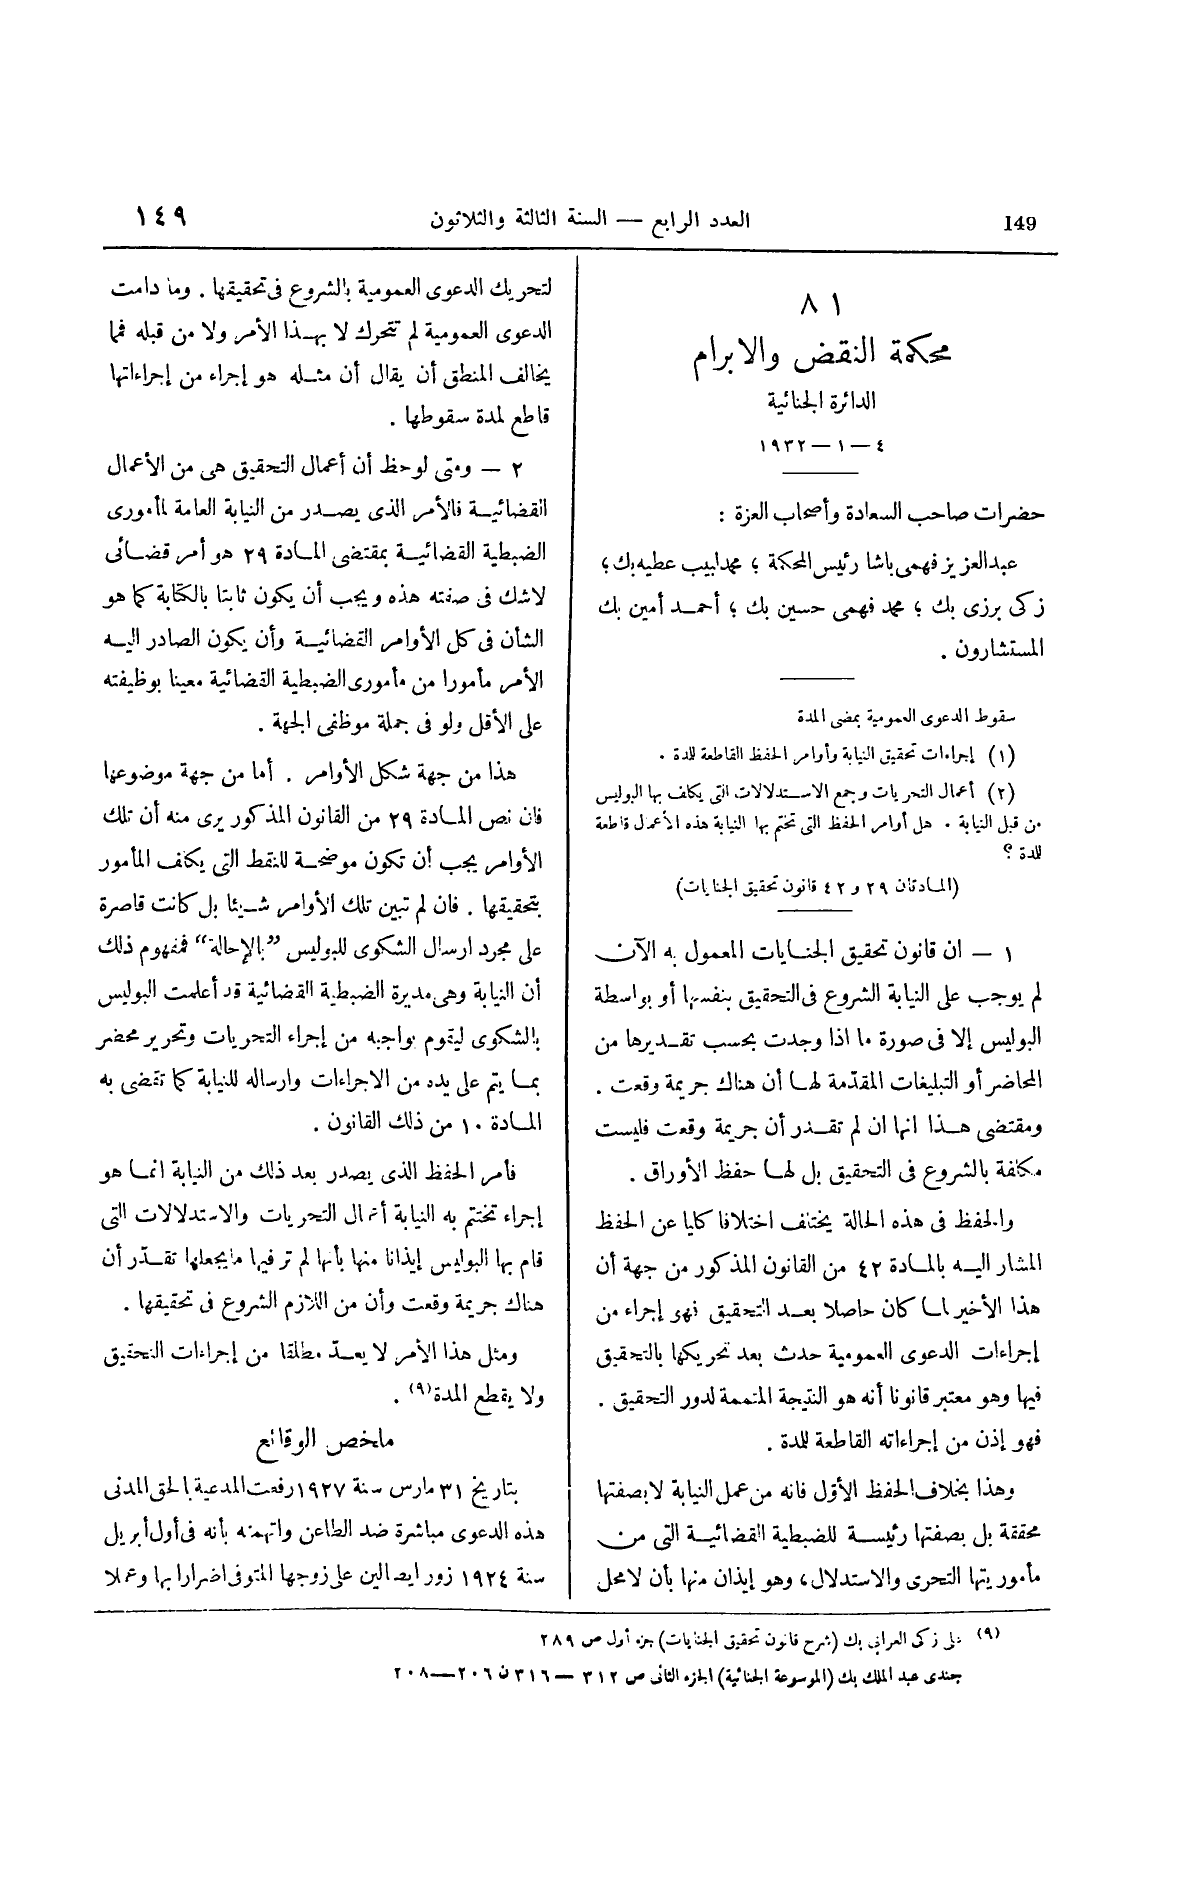 149
العدد الرابع — السنة الثالثة والثلاثون
١٤٩
٨١
محكمة النقض والابرام
الدائرة الجنائية
٤ — ١ — ١٩٣٢
حضرات صاحب السعادة وأصحاب العزة :
عبدالعزيز فهمى باشا رئيس المحكمة ؛ محمد لبيب عطيه بك ؛
زكى برزى بك ؛ محمد فهمى حسين بك ؛ أحمـد أمين بك
المستشارون .
سقوط الدعوى العمومية بمضى المدة
(١) إجراءات تحقيق النيابة وأوامر الحفظ القاطعة للمدة .
(٢) أعمال التحريات وجمع الاستدلالات التى يكلف بها البوليس
من قبل النيابة . هل أوامر الحفظ التى تختم بها النيابة هذه الأعمال قاطعة
للمدة ؟
(المادتان ٢٩ و ٤٢ قانون تحقيق الجنايات)
١ — ان قانون تحقيق الجنـايات المعمول به الآن
لم يوجب على النيابة الشروع فى التحقيق بنفسها أو بواسطة
البوليس إلا فى صورة ما اذا وجدت بحسب تقـديرها من
المحاضر أو التبليغات المقدّمة لهـا أن هناك جريمة وقعت .
ومقتضى هـذا انها ان لم تقـدر أن جريمة وقعت فليست
مكلفة بالشروع فى التحقيق بل لهـا حفظ الأوراق .
والحفظ فى هذه الحالة يختلف اختلافا كليا عن الحفظ
المشار اليـه بالمـادة ٤٢ من القانون المذكور من جهة أن
هذا الأخير لمـا كان حاصلا بعـد التحقيق فهو إجراء من
إجراءات الدعوى العمومية حدث بعد تحريكها بالتحقيق
فيها وهو معتبر قانونا أنه هو النتيجة المتممة لدور التحقيق .
فهو إذن من إجراءاته القاطعة للمدة .
وهذا بخلاف الحفظ الأوّل فانه من عمل النيابة لا بصفتها
محققة بل بصفتها رئيسـة للضبطية القضائيـة التى مـن
مأموريتها التحرى والاستدلال، وهو إيذان منها بأن لا محل
لتحريك الدعوى العمومية بالشروع فى تحقيقها . وما دامت
الدعوى العمومية لم تتحرك لا بهـذا الأمر ولا من قبله فمما
يخالف المنطق أن يقال أن مثـله هو إجراء من إجراءاتها
قاطع لمدة سقوطها .
٢ — ومتى لوحظ أن أعمال التحقيق هى من الأعمال
القضائيـة فالأمر الذى يصـدر من النيابة العامة لمأمورى
الضبطية القضائيـة بمقتضى المـادة ٢٩ هو أمر قضـائى
لاشك فى صفته هذه ويجب أن يكون ثابتا بالكتابة كما هو
الشأن فى كل الأوامر القضائيـة وأن يكون الصادر اليـه
الأمر مأمورا من مأمورى الضبطية القضائية معينا بوظيفته
على الأقل ولو فى جملة موظفى الجهة .
هذا من جهة شكل الأوامر . أما من جهة موضوعها
فان نص المـادة ٢٩ من القانون المذكور يرى منه أن تلك
الأوامر يجب أن تكون موضحـة للنقط التى يكلف المأمور
بتحقيقها . فان لم تبين تلك الأوامر شـيئا بل كانت قاصرة
على مجرد ارسال الشكوى للبوليس "بالإحالة" فمفهوم ذلك
أن النيابة وهى مديرة الضبطية القضائية قد أعلمت البوليس
بالشكوى ليقوم بواجبه من إجراء التحريات وتحرير محضر
بمـا يتم على يده من الاجراءات وارساله للنيابة كما تقضى به
المـادة ١٠ من ذلك القانون .
فأمر الحفظ الذى يصدر بعد ذلك من النيابة انمـا هو
إجراء تختتم به النيابة أعمال التحريات والاستدلالات التى
قام بها البوليس إيذانا منها بأنها لم تر فيها مايجعلها تقـدّر أن
هناك جريمة وقعت وأن من اللازم الشروع فى تحقيقها .
ومثل هذا الأمر لا يعـدّ مطلقا من إجراءات التحقيق
ولا يقطع المدة(٩) .
ملخص الوقائع
بتاريخ ٣١ مارس سنة ١٩٢٧ رفعت المدعية بالحق المدنى
هذه الدعوى مباشرة ضد الطاعن واتهمته بأنه فى أول أبريل
سنة ١٩٢٤ زور ايصالين على زوجها المتوفى اضرارا بها وعملا
(٩) على زكى العرابى بك (شرح قانون تحقيق الجنايات) جزء أول ص ٢٨٩
جندى عبد الملك بك (الموسوعة الجنائية) الجزء الثانى ص ٣١٢ — ٣١٦ ن ٢٠٦ — ٢٠٨